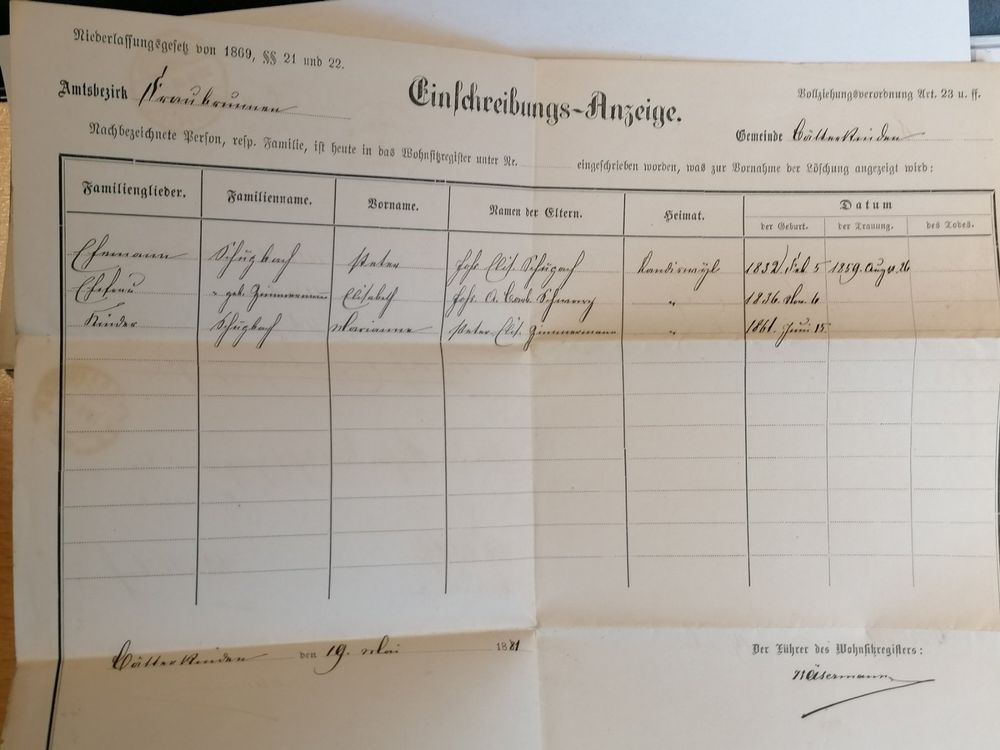 Niederlassungsgesetz von 1869, §§ 21 und 22.
Amtsbezirk Fraubrunnen
Einschreibungs-Anzeige.
Vollziehungsverordnung Art. 23 u. ff.
Gemeinde Bätterkinden
Nachbezeichnete Person, resp. Familie, ist heute in das Wohnsitzregister unter Nr. eingeschrieben worden, was zur Vornahme der Löschung angezeigt wird:
Familienglieder. Familienname. Vorname. Namen der Eltern. Heimat. Datum
der Geburt. der Trauung. des Todes.
Ehemann Schüpbach Peter Johs. Elis. 1832 Feb 5 1859. Aug. 26
Ehefrau " geb. Zimmermann Elisabeth Johs. A. Barb. " 1836. Nov. 6
Kinder Schüpbach Marianna Peter Elis. Zimmermann " 1861. Juni 15
Bätterkinden den 19. Mai 1881
Der Führer des Wohnsitzregisters:
Käsermann